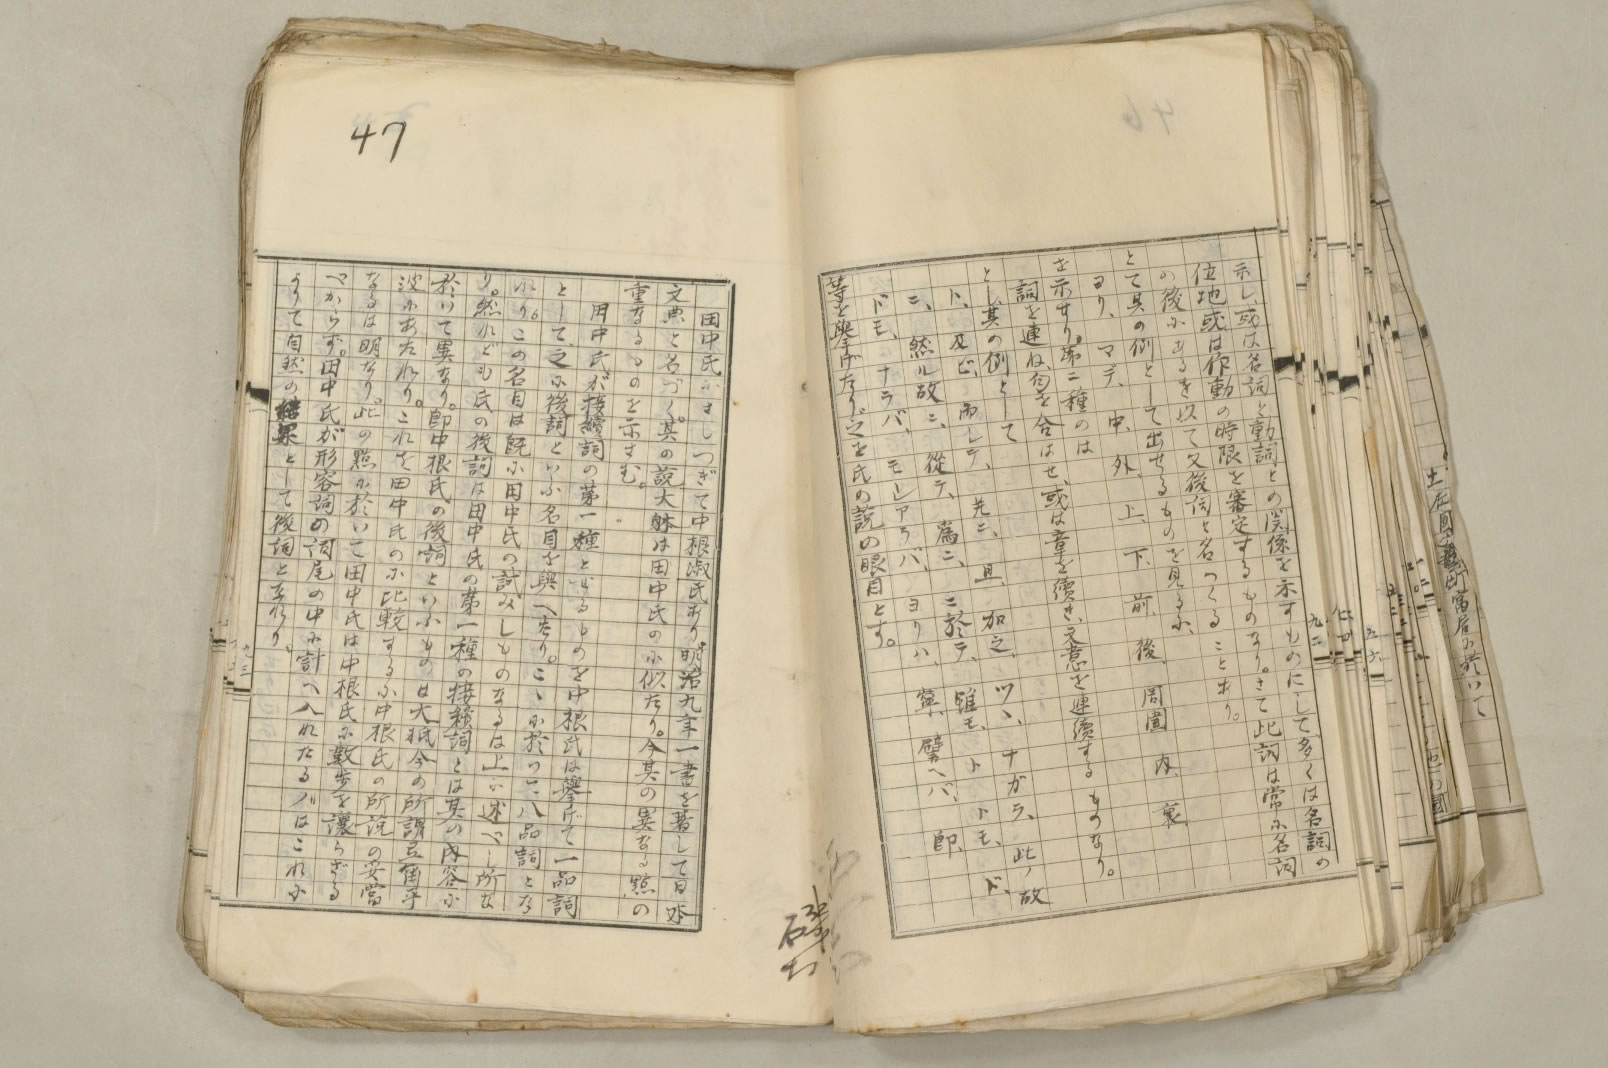 46
示し、或は名詞と動詞との関係を示すものにして多くは名詞の
位地或は作動の時限を審定するものなり。さて此詞は常に名詞
の後にあるを以て又後詞と名づくることあり。
とて其の例として出せるものを見るに、
ヨリ、マデ、中、外、上、下、前、後、周圍、内、裏、
を示せり。第二種のは
詞を連ね句を合はせ、或は章を續き、文意を連續するものなり。
とし其の例として
ト、及ビ、而シテ、先ニ、且、加之、ツヽ、ナガラ、此ノ故
ニ、然ル故ニ、從テ、爲ニ、ニ於テ、雖モ、ト、トモ、ド、
ドモ、ナラバ、モシアラバ、ヨリハ、寧、譬ヘバ、即
等を擧げたり。之を氏の説の眼目とす。
47
田中氏にましつぎて中根淑氏あり。明治九年一書を著して日本
文典と名づく。其の説大躰は田中氏のに似たり。今其の異なる點の
重なるものを示さむ。
田中氏が接續詞の第一種とせるものを中根氏は擧げて一品詞
として、之に後詞といふ名目を與へたり。こゝに於て八品詞とな
れり。この名目は既に田中氏の試みしものなるは上に述べし所な
り。然れども氏の後詞は田中氏の第一種の接續詞とは其の内容に
於いて異なり。即中根氏の後詞といふものは大抵今の所謂弖爾乎
波にあたれり。これを田中氏のに比較するに中根氏の所説の妥當
なるは明なり。此の點に於いて田中氏は中根氏に數歩を讓らざる
べからず。田中氏が形容詞の詞尾の中に計へ入れたるノはこれに
よりて自然の結果として後詞と
九二
九三
七四
五六